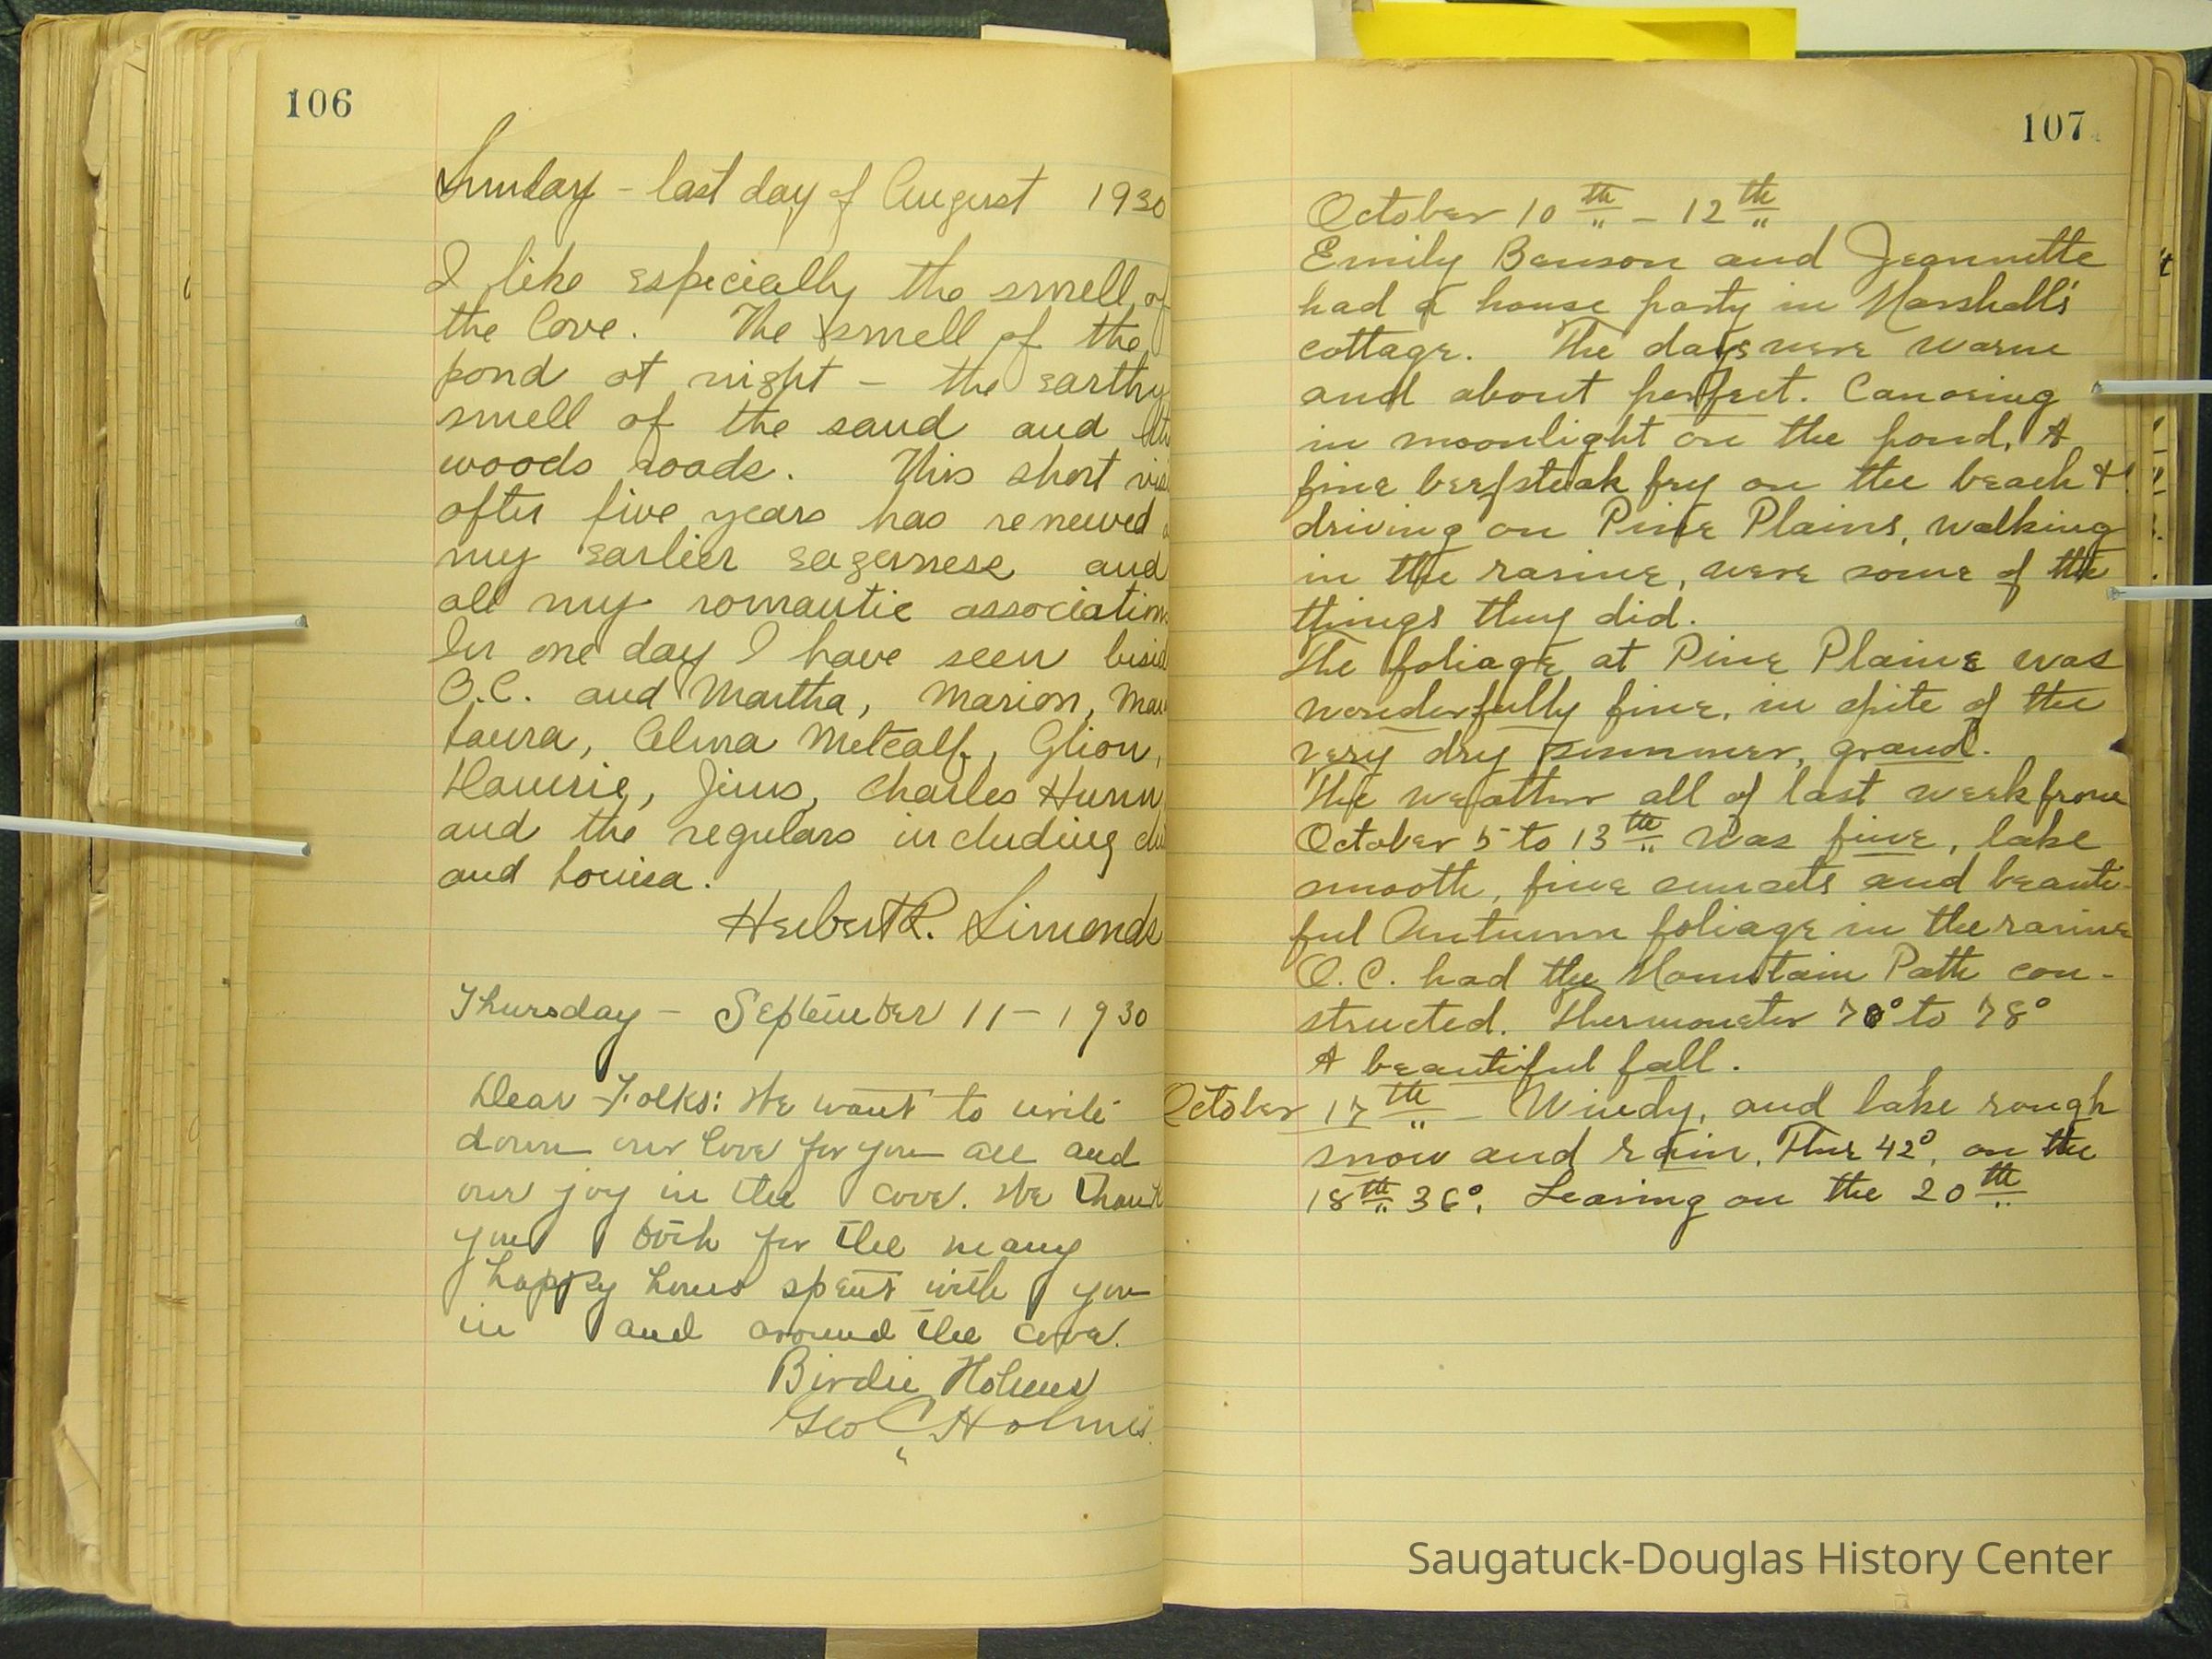 106
Sunday - last day of August 1930
I like especially the smell of
the Cove. The smell of the
pond at night - the earthy
smell of the sand and
woods roads. This short
after five years has renewed
my earlier eagerness and
all my romantic association
In one day I have seen
O.C. and Martha, Marion,
Laura, Alma Metcalf, Glion,
Jims, Charles Hunn
and the regulars including
and Louisa.
Herbert R. Simonds
Thursday - September 11 - 1930
Dear Folks: We want to write
down our love for you all and
our joy in the cove. We thank
you both for the many
happy hours spent with you
in and around the cove.
Birdie Holmes
Geo C Holmes.
107
October 10th - 12th
Emily Benson and Jeannette
had a house party in Marshall's
cottage. The days were warm
and about perfect. Canoeing
in moonlight on the pond, A
fine beefsteak fry on the beach &
driving on Pine Plains, walking
in the ravine, were some of the
things they did.
The foliage at Pine Plains was
wonderfully fine, in spite of the
very dry summer, grand.
The weather all of last week from
October 5 to 13th was fine, lake
smooth, fine sunsets and beauti-
ful Autumn foliage in the ravine
O.C. had the Mountain Path con-
structed. Thermometer 70° to 78°
A beautiful fall.
October 17th - Windy, and lake rough
snow and rain. Ther 42°, on the
18th 36°. Leaving on the 20th
Saugatuck-Douglas History Center